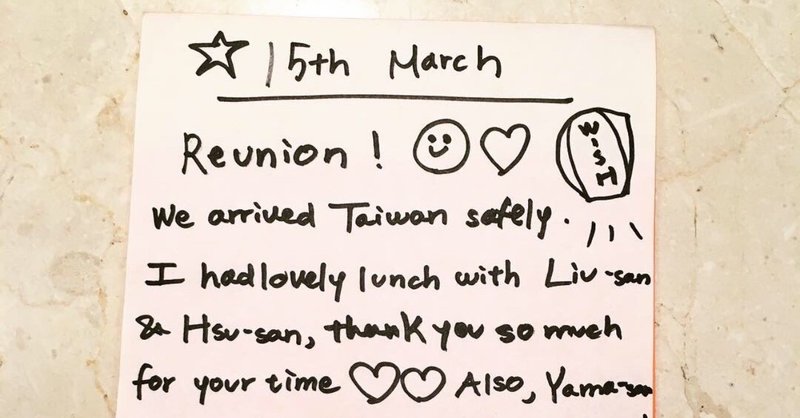 15th March
Reunion!
WISH
We arrived Taiwan safely.
I had lovely lunch with Liu-san
& Hsu-san, thank you so much
for your time Also, Yama-san